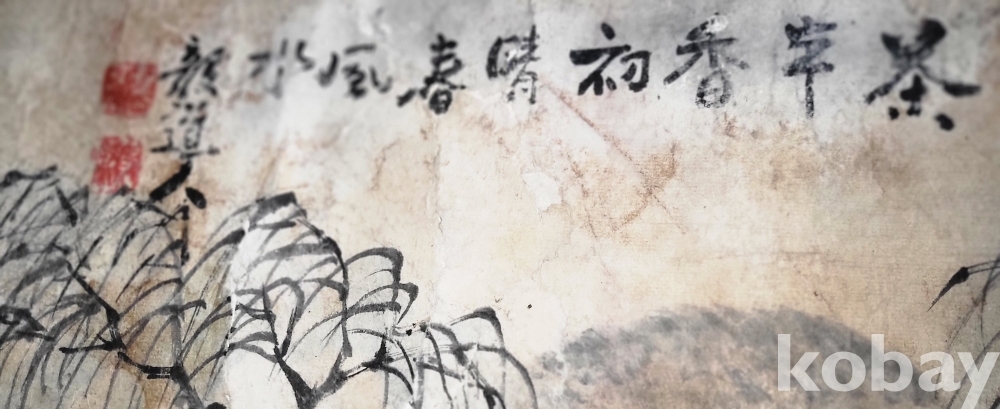 茶半香初晴春風水
道人
kobay